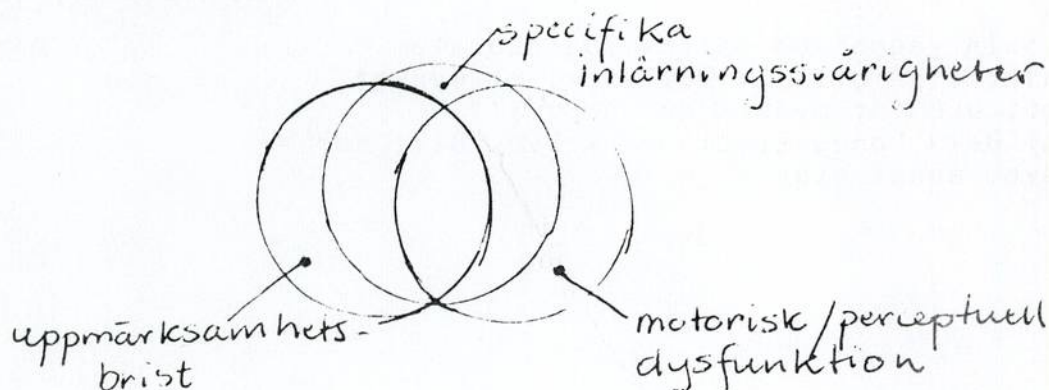 specifika
inlärningssvårigheter
uppmärksamhets-
brist
motorisk/perceptuell
dysfunktion